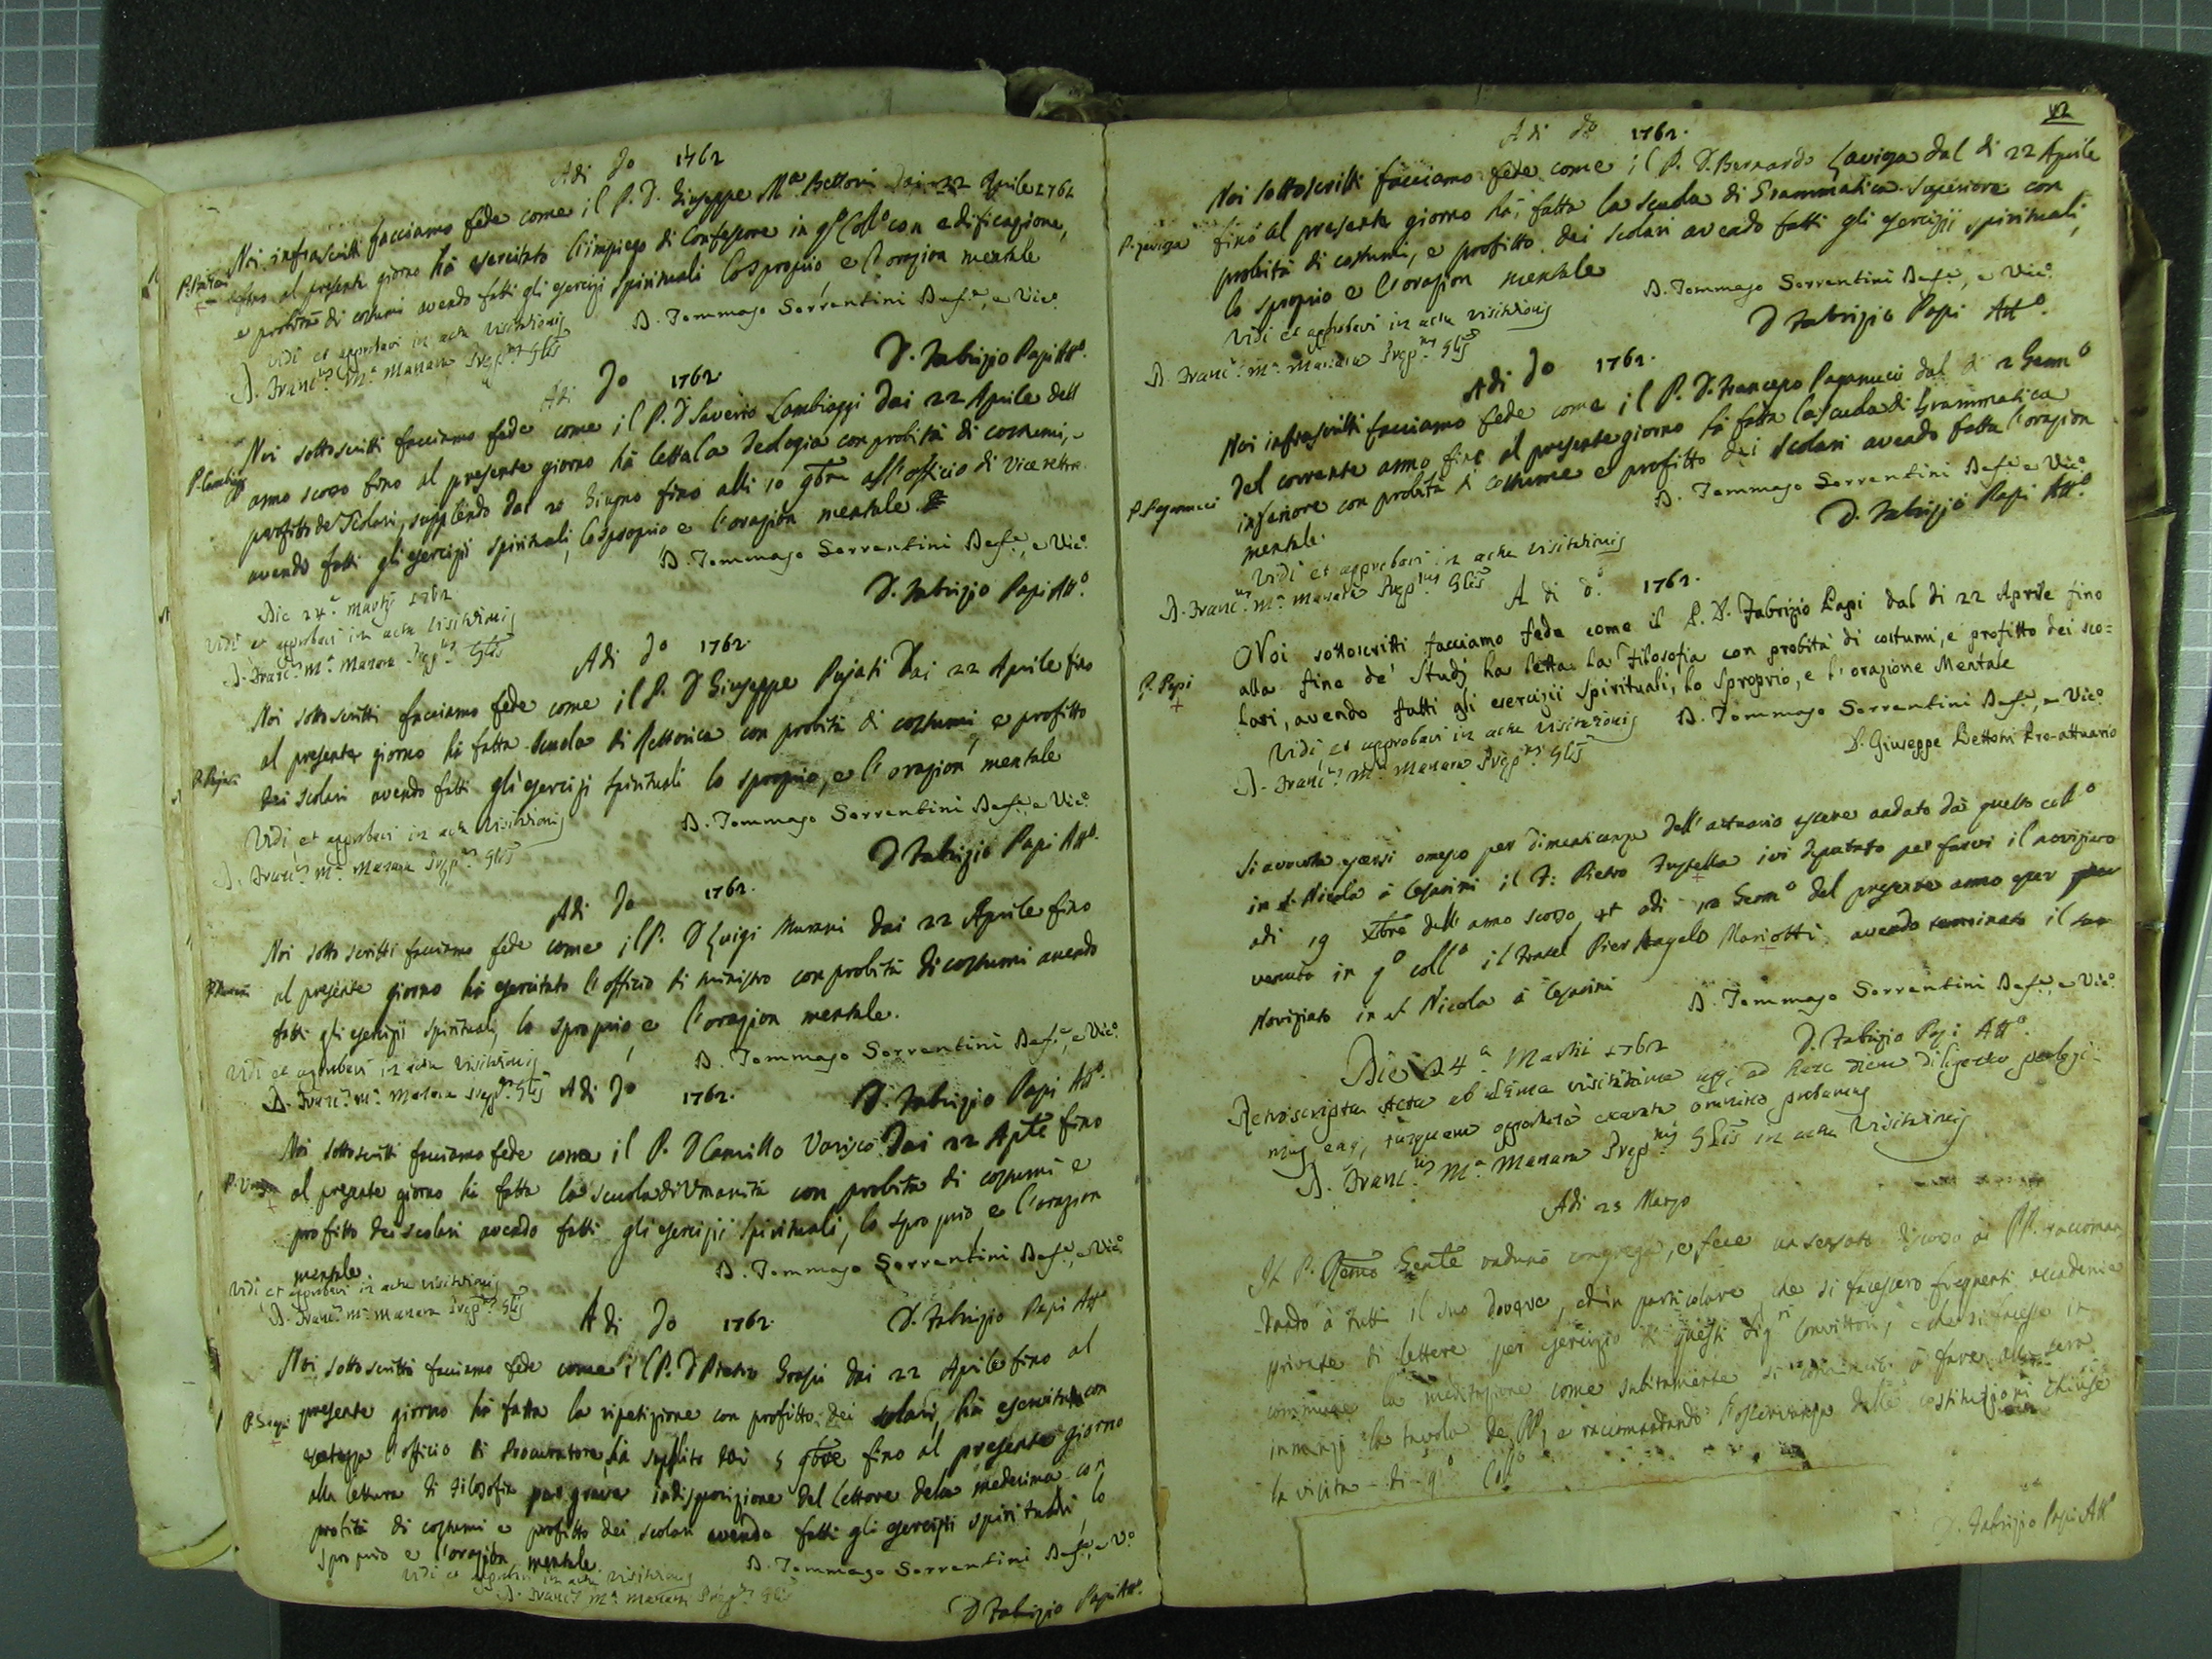 Adi do 1762
Noi infrascritti facciamo fede come il P. D. Giuseppe Mª Bettoni dai 22 Aprile 1762
P. Bettoni
fino al presente giorno hà esercitato l'impiego di Confessore in qº Collº con edificazione,
e probità di costumi avendo fatti gli esercizj spirituali lo sproprio e l'orazion mentale
Vidi et approbavi in actu visitationis
D. Tommaso Sorrentini Def.e, e Vic.o
D. Franc.us M.a Manara Prep.us Glis
D. Fabrizio Papi Att.o
Adi do 1762.
Noi sottoscritti facciamo fede come il P. D Saverio Lambiaggi dai 22 Aprile dell
P. Lambiaggi
anno scorso fino al presente giorno hà letta la Teologia con probità di costumi, e
profitto de' Scolari, supplendo dal 20 Giugno fino alli 10 9bre all'officio di Vice rettre
avendo fatti gli esercizii spirituali, lo sproprio e l'orazion mentale.
D. Tommaso Sorrentini Def.e, e Vic.o
Die 24.a Martij 1762
D. Fabrizio Papi Att.o
Vidi et approbavi in actu visitationis
D. Franc.us M.a Manara Prep.us Glis
Adi do 1762.
Noi sottoscritti facciamo fede come il P. D Giuseppe Pujati Dai 22 Aprile fino
al presente giorno hà fatta scuola di Rettorica con probità di costumi, e profitto
P. Pujati
dei scolari avendo fatti gli esercizj spirituali lo sproprio, e l'orazion mentale
Vidi et approbavi in actu visitationis
D. Tommaso Sorrentini Def.e, e Vic.o
D. Franc.us M.a Manara Prep.us Glis
D Fabrizio Papi Att.o
Adi do 1762.
Noi sottoscritti facciamo fede come il P. D Luigi Murani dai 22 Aprile fino
P. Murani
al presente giorno hà esercitato l'officio di ministro con probità di costumi avendo
fatti gli esercizii spirituali, lo sproprio, e l'orazion mentale.
Vidi et approbavi in actu visitationis
D. Tommaso Sorrentini Def.e, e Vic.o
D. Franc.us M.a Manara Prep.us Glis
Adi do 1762.
D. Fabrizio Papi Att.o
Noi sottoscritti facciamo fede come il P. D Camillo Varisco Dai 22 Aple fino
al presente giorno hà fatta la scuola di Umanità con probità di costumi e
profitto dei scolari avendo fatti gli esercizii spirituali, lo sproprio e l'orazion
mentale
Vidi et approbavi in actu visitationis
D. Tommaso Sorrentini Def.e, e Vic.o
D. Franc.us M.a Manara Prep.us Glis
Adi do 1762.
D. Fabrizio Papi Att.o
Noi sottoscritti facciamo fede come il P. D Pietro dai 22 Aprile fino al
presente giorno hà fatta la ripetizione con profitto dei scolari, hà esercitato con
esatezza l'officio di Procuratore, hà supplito dai 5 9bre fino al presente giorno
alla lettura di Filosofia per grave indisposizione del Lettore della medesima con
probità di costumi e profitto dei scolari avendo fatti gli esercizii spirituali, lo
sproprio e l'orazion mentale
Vidi et approbavi in actu visitationis
D. Tommaso Sorrentini Def.e, e V.o
D. Franc.us M.a Manara Prep.us Glis
D Fabrizio Papi Att.o
Adi do 1762.
Noi sottoscritti facciamo fede come il P. D. Bernardo Laviosa dal di 22 Aprile
P. Laviosa
fino al presente giorno hà fatta la scuola di Grammatica superiore con
probità di costumi, e profitto dei scolari avendo fatti gli esercizii spirituali,
lo sproprio e l'orazion mentale
Vidi et approbavi in actu visitationis
D. Tommaso Sorrentini Def.e, e Vic.o
D. Franc.us M.a Manara Prep.us Glis
D Fabrizio Papi Att.o
Adi do 1762.
Noi infrascritti facciamo fede come il P. D. Francesco Paganucci dal di 2 Genn.o
P. Paganucci
del corrente anno fino al presente giorno hà fatta la scuola di Grammatica
inferiore con probità di costume e profitto dei scolari avendo fatta l'orazion
mentale.
D. Tommaso Sorrentini Def.e e Vic.o
Vidi et approbavi in actu visitationis
D. Fabrizio Papi Att.o
D. Franc.us M.a Manara Prep.us Glis
A di d.o 1762.
Noi sottoscritti facciamo fede come il P. D. Fabrizio Papi dal di 22 Aprile fino
P. Papi
alla fine de' Studj ha letta la Filosofia con probità di costumi, e profitto dei sco=
lari, avendo fatti gli esercizii Spirituali, lo Sproprio, e l'orazione Mentale
Vidi et approbavi in actu visitationis
D. Tommaso Sorrentini Def.e, e Vic.o
D. Franc.us M.a Manara Prep.us Glis
D. Giuseppe Bettoni Pro-attuario
Si avverta essersi omesso per dimenticanza dell'attuario essere andato da questo coll.o
in S. Nicola à Cesarini il F: Pietro ivi deputato per farvi il noviziato
adi 19 Xbre dell'anno scorso, et adi Genn.o del presente anno esser
venuto in q.o coll.o il Fratel Pier Angelo Mariotti avendo terminato il suo
Noviziato in S. Nicola à Cesarini
D. Tommaso Sorrentini Def.e, e Vic.o
D. Fabrizio Papi Att.o
Die 24.a Martii 1762
Retroscripta Acta ab ultima visitatione usq; ad hanc diem diligenter
D. Franc.us M.a Manara Prep.us Glis in actu Visitationis
Adi 25 Marzo
Il P. Rmo Genle radunò congrega, e fece un sensato discorso ai PP. raccoman
-dando à tutti il suo dovere, ed in particolare che si facessero frequenti accademie
private di lettere per esercizio di questi Sig.ri Convittori, e che si facesse in
commune la meditazione come subitamente si cominciò à fare alla sera
innanzi la tavola de PP, e raccomandando l'osservanza delle costituzioni chiuse
la visita di q.o Coll.o
D. Fabrizio Papi Att.o